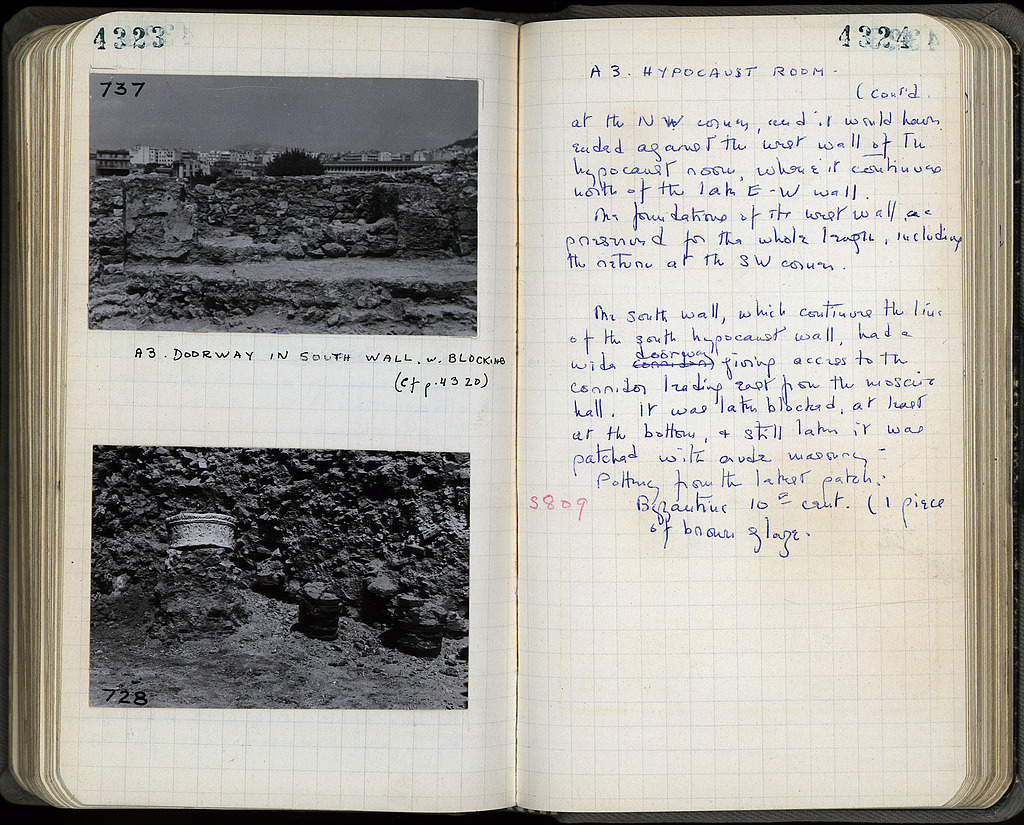 4323
737
A3. DOORWAY IN SOUTH WALL. w. BLOCKING
(Cf p. 4320)
728
4324
A3. HYPOCAUST ROOM.
(cont'd.
at the NW corner, and it would have
ended against the west wall of the
hypocaust room, where it continues
north of the late E-W wall.
The foundations of the west wall are
preserved for the whole length, including
the return at the SW corner.
The south wall, which continues the line
of the south hypocaust wall, had a
wide corridor doorway giving access to the
corridor leading east from the mosaic
hall. It was later blocked, at least
at the bottom, & still later it was
patched with crude masonry -
Pottery from the latest patch:
S809 Byzantine 10th cent. (1 piece
of brown glaze.